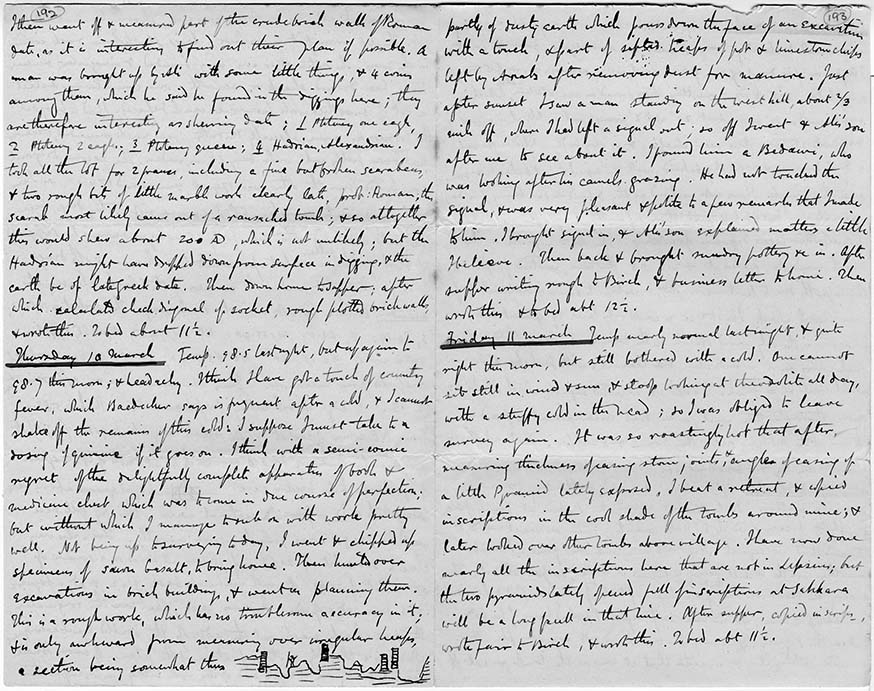 192
then went off & measured part of the crude brick walls of Roman
date, as it is interesting to find out their plan if possible. A
man was brought up by Ali with some little things, & 4 coins
among them, which he said he found in the diggings here; they
are therefore interesting as shewing date; 1 Ptolemy one eagle,
2 Ptolemy 2 eagles; 3 Ptolemy queene; 4 Hadrian, Alexandrian. I
took all the lot for 2 francs, including a fine but broken scarabeus,
& two rough bits of little marble work clearly late, prob: Roman; the
scarab most likely came out of a ransacked tomb; & so altogether
this would shew about 200 AD, which is not unlikely; but the
Hadrian might have dropped down from surface in digging, & the
earth be of late greek date. Then down home to supper; after
which calculated check diagonal of socket, rough plotted brick walls,
& wrote this. To bed about 11½.
Thursday 10 March Temp. 98.5 last night, but up again to
98.7 this morn; & headachy. I think I have got a touch of country
fever, which Baedecker says is frequent after a cold, & I cannot
shake off the remains of this cold: I suppose I must take to a
dosing of quinine if it goes on. I think with a semi-comic
regret of the delightfully complete apparatus of books &
medicine chest, which was to come in due course of perfection:
but without which I manage to rub on with work pretty
well. Not being up to surveying today, I went & chipped up
specimens of sawn basalt, to bring home. Then hunted over
excavations in brick buildings, & went on planning them.
This is a rough work, which has no troublesome accuracy in it,
& is only awkward from measuring over irregular heaps,
a section being somewhat thus
193
partly of dusty earth which pours down the face of an excavation
with a touch, & part of sifted heaps of pot & limestone chips
left by Arabs after removing dust for manure. Just
after sunset I saw a man standing on the west hill, about ⅔
mile off, where I had left a signal out; so off I went & Ali's son
after me to see about it. I found him a Bedawi, who
was looking after his camels grazing. He had not touched the
signal, & was very pleasant & polite to a few remarks that I made
to him, I brought signal in, & Ali's son explained matters a little
I believe. Then back & brought sundry pottery &c in. After
supper writing rough to Birch, & business letter to home. Then
wrote this & to bed abt 12½.
Friday 11 March Temp nearly normal last night, & quite
right this morn, but still bothered with a cold. One cannot
sit still in wind & sun, & stoop looking at theodolite all day,
with a stuffy cold in the head; so I was obliged to leave
survey again. It was so roastingly hot that after
measuring thickness of casing stone joints, & angles of casing of
a little Pyramid lately exposed, I beat a retreat, & copied
inscriptions in the cool shade of the tombs around mine; &
later looked over other tombs above village. I have now done
nearly all the inscriptions here that are not in Lepsius; but
the two pyramids lately opened full of inscriptions at Sakkara
will be a long pull in that line. After supper, copied inscrips,
wrote fair to Birch, & wrote this. To bed abt 11½.